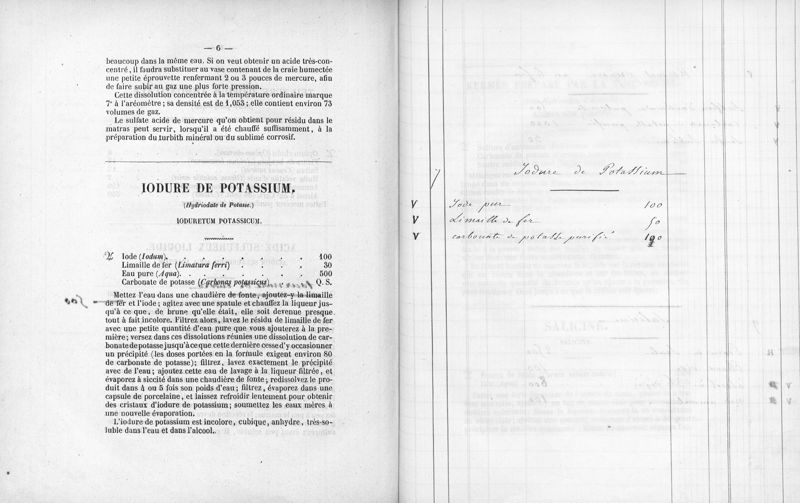 — 6 —
beaucoup dans la même eau. Si on veut obtenir un acide très-con-
centré, il faudra substituer au vase contenant de la craie humectée
une petite éprouvette renfermant 2 ou 3 pouces de mercure, afin
de faire subir au gaz une plus forte pression.
Cette dissolution concentrée à la température ordinaire marque
7° à l'aréomètre; sa densité est de 1,053; elle contient environ 73
volumes de gaz.
Le sulfate acide de mercure qu'on obtient pour résidu dans le
matras peut servir, lorsqu'il a été chauffé suffisamment, à la
préparation du turbith minéral ou du sublimé corrosif.
IODURE DE POTASSIUM,
(Hydriodate de Potasse.)
IODURETUM POTASSICUM.
Iode (Iodum). . . . . . . 100
Limaille de fer (Limatura ferri) . . . . 30
Eau pure (Aqua). . . . . . . 500
Carbonate de potasse (Carbonas potassicus) Q. S.
Mettez l'eau dans une chaudière de fonte, ajoutez-y la limaille
de fer et l'iode; agitez avec une spatule et chauffez la liqueur jus-
qu'à ce que, de brune qu'elle était, elle soit devenue presque
tout à fait incolore. Filtrez alors, lavez le résidu de limaille de fer
avec une petite quantité d'eau pure que vous ajouterez à la pre-
mière; versez dans ces dissolutions réunies une dissolution de car-
bonate de potasse jusqu'à ce que cette dernière cesse d'y occasionner
un précipité (les doses portées en la formule exigent environ 80
de carbonate de potasse); filtrez, lavez exactement le précipité
avec de l'eau; ajoutez cette eau de lavage à la liqueur filtrée, et
évaporez à siccité dans une chaudière de fonte; redissolvez le pro-
duit dans 4 ou 5 fois son poids d'eau; filtrez, évaporez dans une
capsule de porcelaine, et laissez refroidir lentement pour obtenir
des cristaux d'iodure de potassium; soumettez les eaux mères à
une nouvelle évaporation.
L'iodure de potassium est incolore, cubique, anhydre, très-so-
luble dans l'eau et dans l'alcool.
Iodure de Potassium
V Iode pur 100
V Limaille de fer 50
V carbonate de potasse purifié